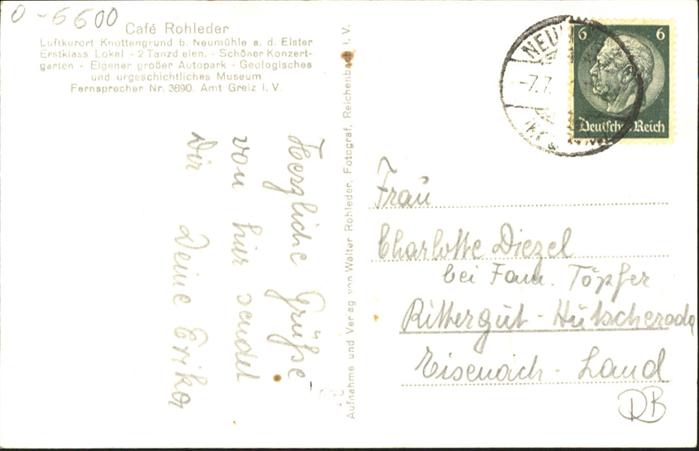 0-6600
Café Rohleder
Luftkurort Knottengrund b. Neumühle a. d. Elster
Erstklass. Lokal - 2 Tanzdielen. - Schöner Konzert-
garten - Eigener großer Autopark - Geologisches
und urgeschichtliches Museum
Fernsprecher Nr. 3690. Amt Greiz i. V.
Herzliche Grüße
von hier sendet
Dir Deine Erika
Aufnahme und Verlag von Walter Rohleder, Fotograf, Reichenbach i. V.
NEUM
-7.7.
6 6
Deutsches Reich
Frau
Charlotte Diezel
bei Fam. Töpfer
Rittergut - Hütscheroda
Eisenach - Land
DB